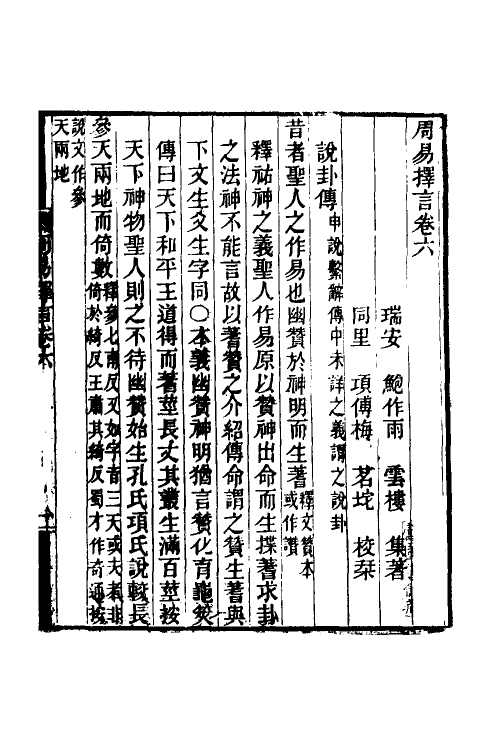 周易擇言卷六
瑞安 鮑作雨 雲樓 集著
同里 項傅梅 茗垞 校栞
說卦傳申說繫辭傳中未詳之義謂之說卦
昔者聖人之作易也幽贊於神明而生蓍釋文贊本或作讚
釋祐神之義聖人作易原以贊神出命而生揲蓍求卦
之法神不能言故以蓍贊之介紹傳命謂之贊生蓍與
下文生爻生字同〇本義幽贊神明猶言贊化育龜筴
傳曰天下和平王道得而蓍莖長丈其叢生滿百莖按
天下神物聖人則之不待幽贊始生孔氏項氏說較長
參天兩地而倚數釋參七南反又如字音三天或夫者非倚於綺反王肅其綺反蜀才作奇通按
說文作參天兩地